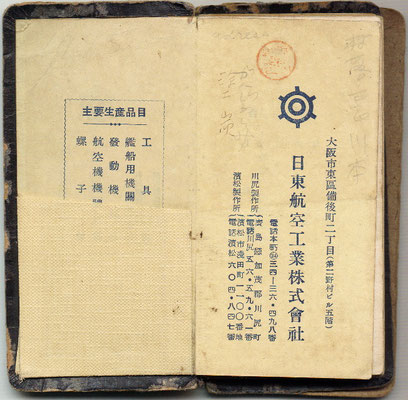 大阪市東區備後町二丁目(第二野村ビル五階)
日東航空工業株式會社
電話本町㉔三四一三六・四九八番
川尻製作所
廣島縣加茂郡川尻町
電話川尻五六・五九・六一番
濱松製作所
濱松市逺田町一一〇〇番地
電話濱松六〇四・八四七番
主要生產品目
工具
艦船用機關
發動機
航空機機
螺子